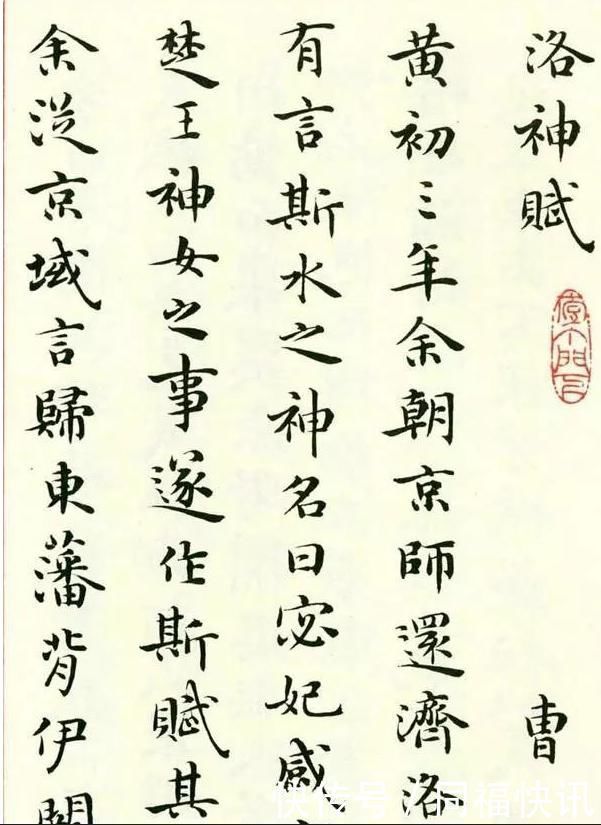 洛神賦 曹
黄初三年余朝京師還濟洛
有言斯水之神名曰宓妃感
楚王神女之事遂作斯賦其
余從京域言歸東藩背伊
快传号 / 同福快讯